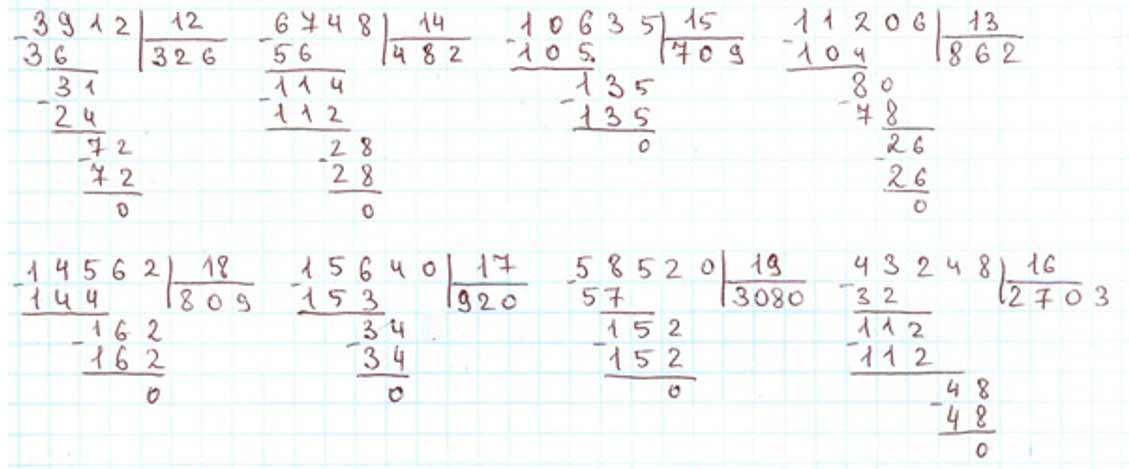 3912 12 6748 14 10635 15 11206 13
36 326 56 482 105 709 104 862
31 114 135 80
24 112 135 78
72 28 0 26
72 28 26
0 0 0
14562 18 15640 17 58520 19 43248 16
144 809 153 920 57 3080 32 2703
162 34 152 112
162 34 152 112
0 0 0 48
48
0